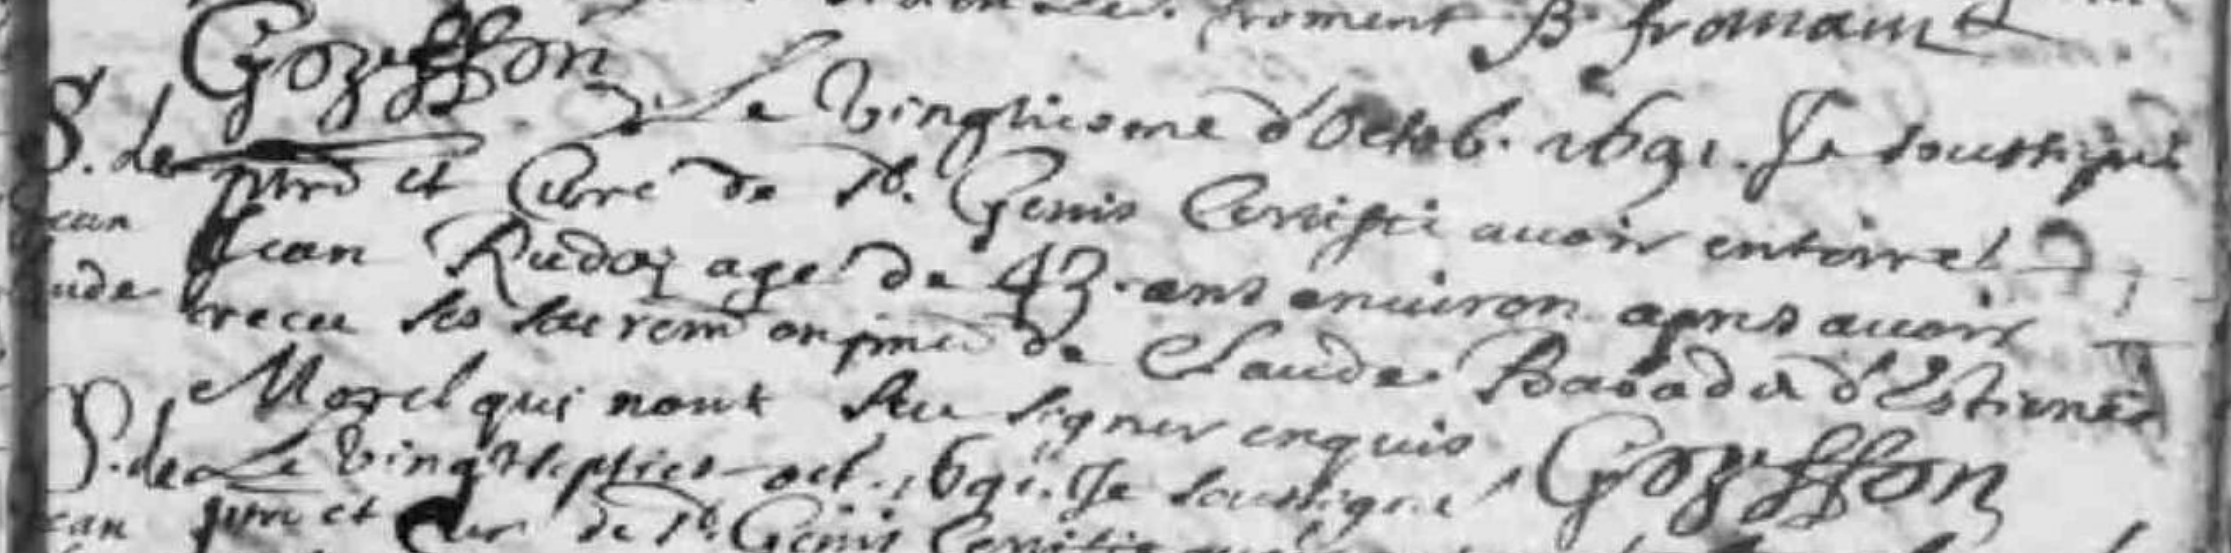 froment B fromant
Gozeffon
Le vingtiesme d'Octob. 1691. Je soussigné
S. de
ptre et Curé de St. Genis Certifie avoir enterré
Jean Rudoz agé de 43. ans environ apres avoir
receu les sacrem en pnce de Claude d'Estienne
Morel qui nont sceu signer enquis Gozeffon
S. de Le vingt septies oct. 1691. Je soussigné
ptre et Cur de St. Genis Certifie